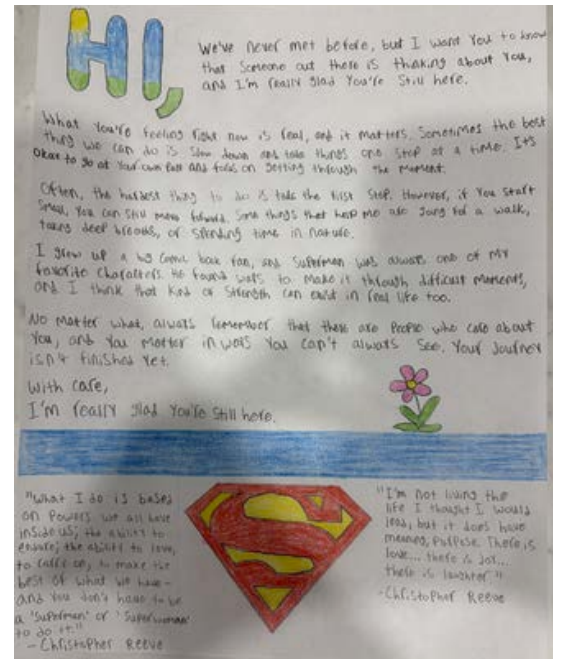 HI,
We've never met before, but I want You to know
that Someone out there is thinking about You,
and I'm really glad You're Still here.
What You're feeling right now is real, and it matters. Sometimes the best
thing we can do is slow down and take things one step at a time. It's
okay to go at Your own Pace and focus on getting through the moment.
Often, the hardest thing to do is take the first step. However, if You start
small, You can still move forward. Some things that help me are going for a walk,
taking deep breaths, or spending time in nature.
I grew up a big Comic book fan, and Superman was always one of my
favorite Characters. He found ways to make it through difficult moments,
and I think that kind of strength can exist in real life too.
No matter what, always remember that there are People who care about
You, and You matter in ways You can't always see. Your Journey
isn't finished Yet.
With care,
I'm really glad You're Still here.
"What I do is based
on Powers we all have
inside us; the ability to
endure; the ability to love,
to carry on, to make the
best of what we have –
and You don't have to be
a 'Superman' or 'Superwoman'
to do it."
– Christopher Reeve
S
"I'm not living the
life I thought I would
lead, but it does have
meaning, Purpose. There is
love... there is Joy...
there is laughter."
-Christopher Reeve